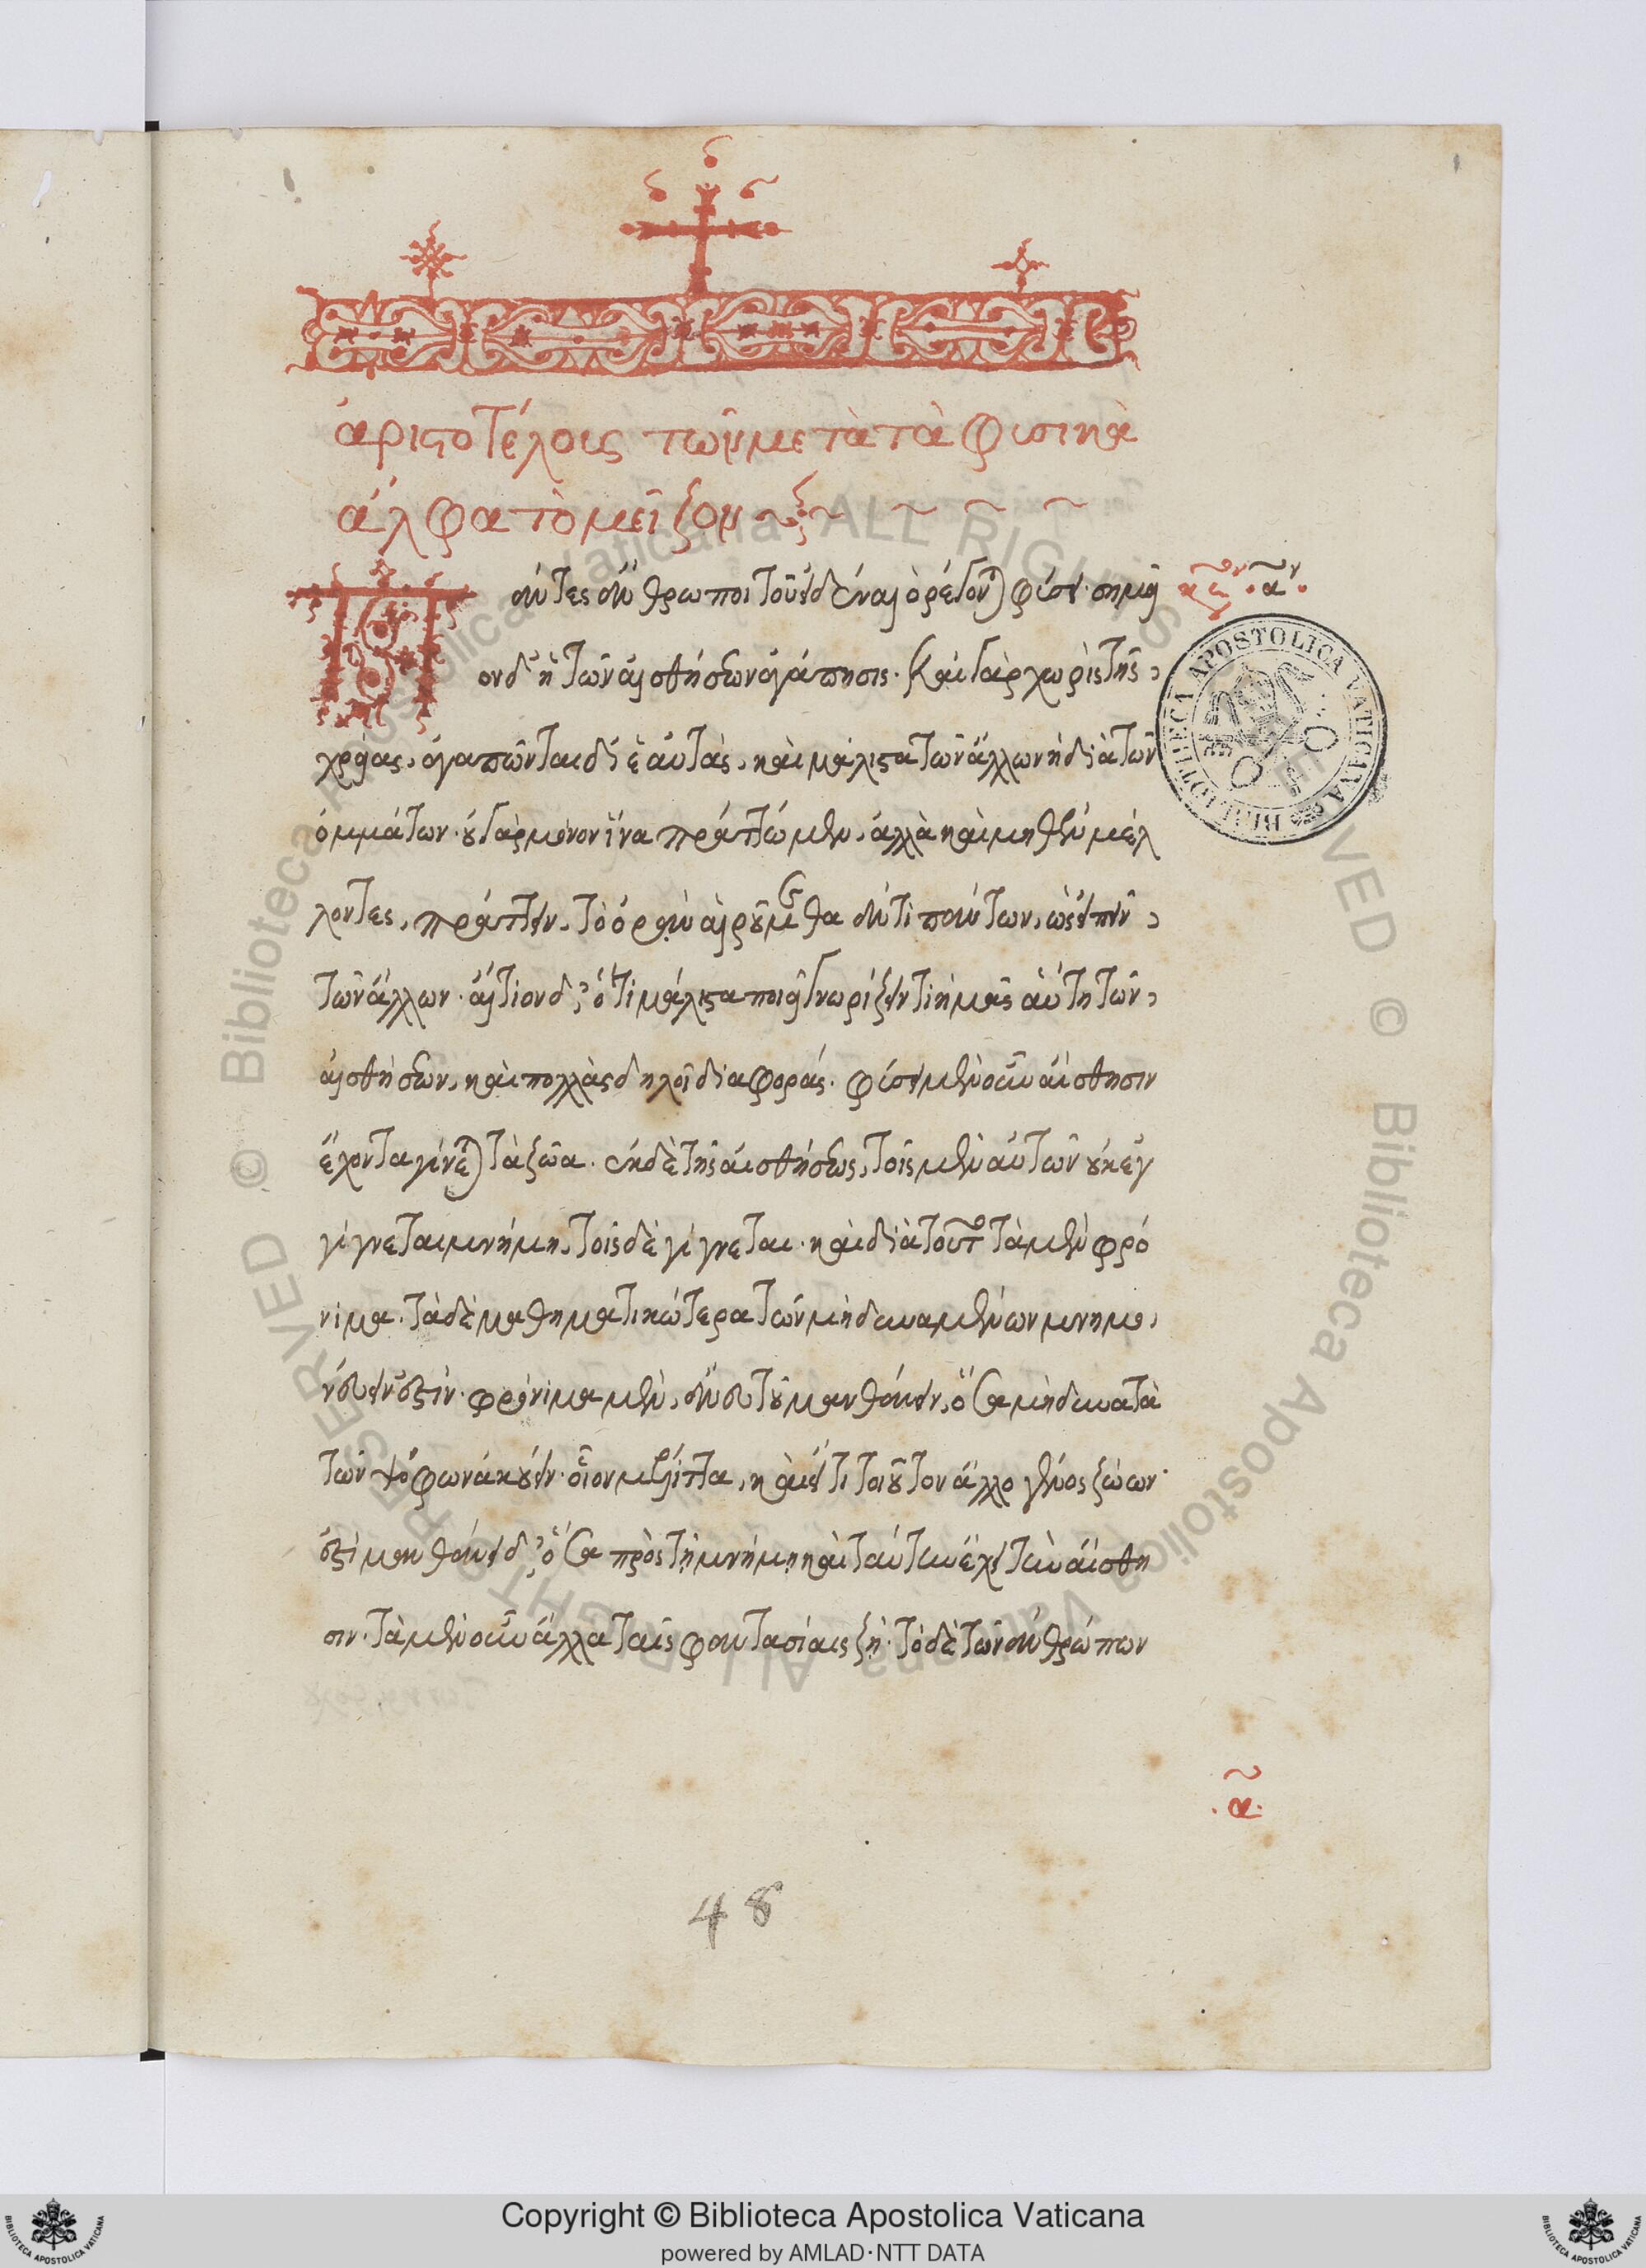 ἀριστοτέλους τῶν μετὰ τὰ φυσικὰ
ἄλφα τὸ μεῖζον
Πάντες ἄνθρωποι τοῦ εἰδέναι ὀρέγονται φύσει· σημεῖ
ον δ' ἡ τῶν αἰσθήσεων ἀγάπησις· καὶ γὰρ χωρὶς τῆς
χρείας, ἀγαπῶνται δι' ἑαυτὰς, καὶ μάλιστα τῶν ἄλλων ἡ διὰ τῶν
ὀμμάτων· οὐ γὰρ μόνον ἵνα πράττωμεν, ἀλλὰ καὶ μηθὲν μέλ
λοντες πράττειν, τὸ ὁρᾶν αἱρούμεθα ἀντὶ πάντων, ὡς εἰπεῖν
τῶν ἄλλων· αἴτιον δ' ὅτι μάλιστα ποιεῖ γνωρίζειν τι ἡμᾶς αὕτη τῶν
αἰσθήσεων, καὶ πολλὰς δηλοῖ διαφοράς· φύσει μὲν οὖν αἴσθησιν
ἔχοντα γίνεται τὰ ζῶα· ἐκ δὲ τῆς αἰσθήσεως, τοῖς μὲν αὐτῶν οὐκ ἐγ
γίγνεται μνήμη, τοῖς δὲ γίγνεται· καὶ διὰ τοῦτο τὰ μὲν φρό
νιμα· τὰ δὲ μαθηματικώτερα τῶν μὴ δυναμένων μνημο
νεύειν ἐστίν· φρόνιμα μὲν, ἄνευ τοῦ μανθάνειν, ὅσα μὴ δύναται
τῶν ψόφων ἀκούειν· οἷον μέλιττα, καὶ εἴ τι τοιοῦτον ἄλλο γένος ζώων·
μανθάνει δ' ὅσα πρὸς τῆ μνήμη καὶ ταύτην ἔχει τὴν αἴσθη
σιν· τὰ μὲν οὖν ἄλλα ταῖς φαντασίαις ζῆ· τὸ δὲ τῶν ἀνθρώπων
·α·
48
BIBLIOTHECA APOSTOLICA VATICANA
Copyright © Biblioteca Apostolica Vaticana
powered by AMLAD·NTT DATA